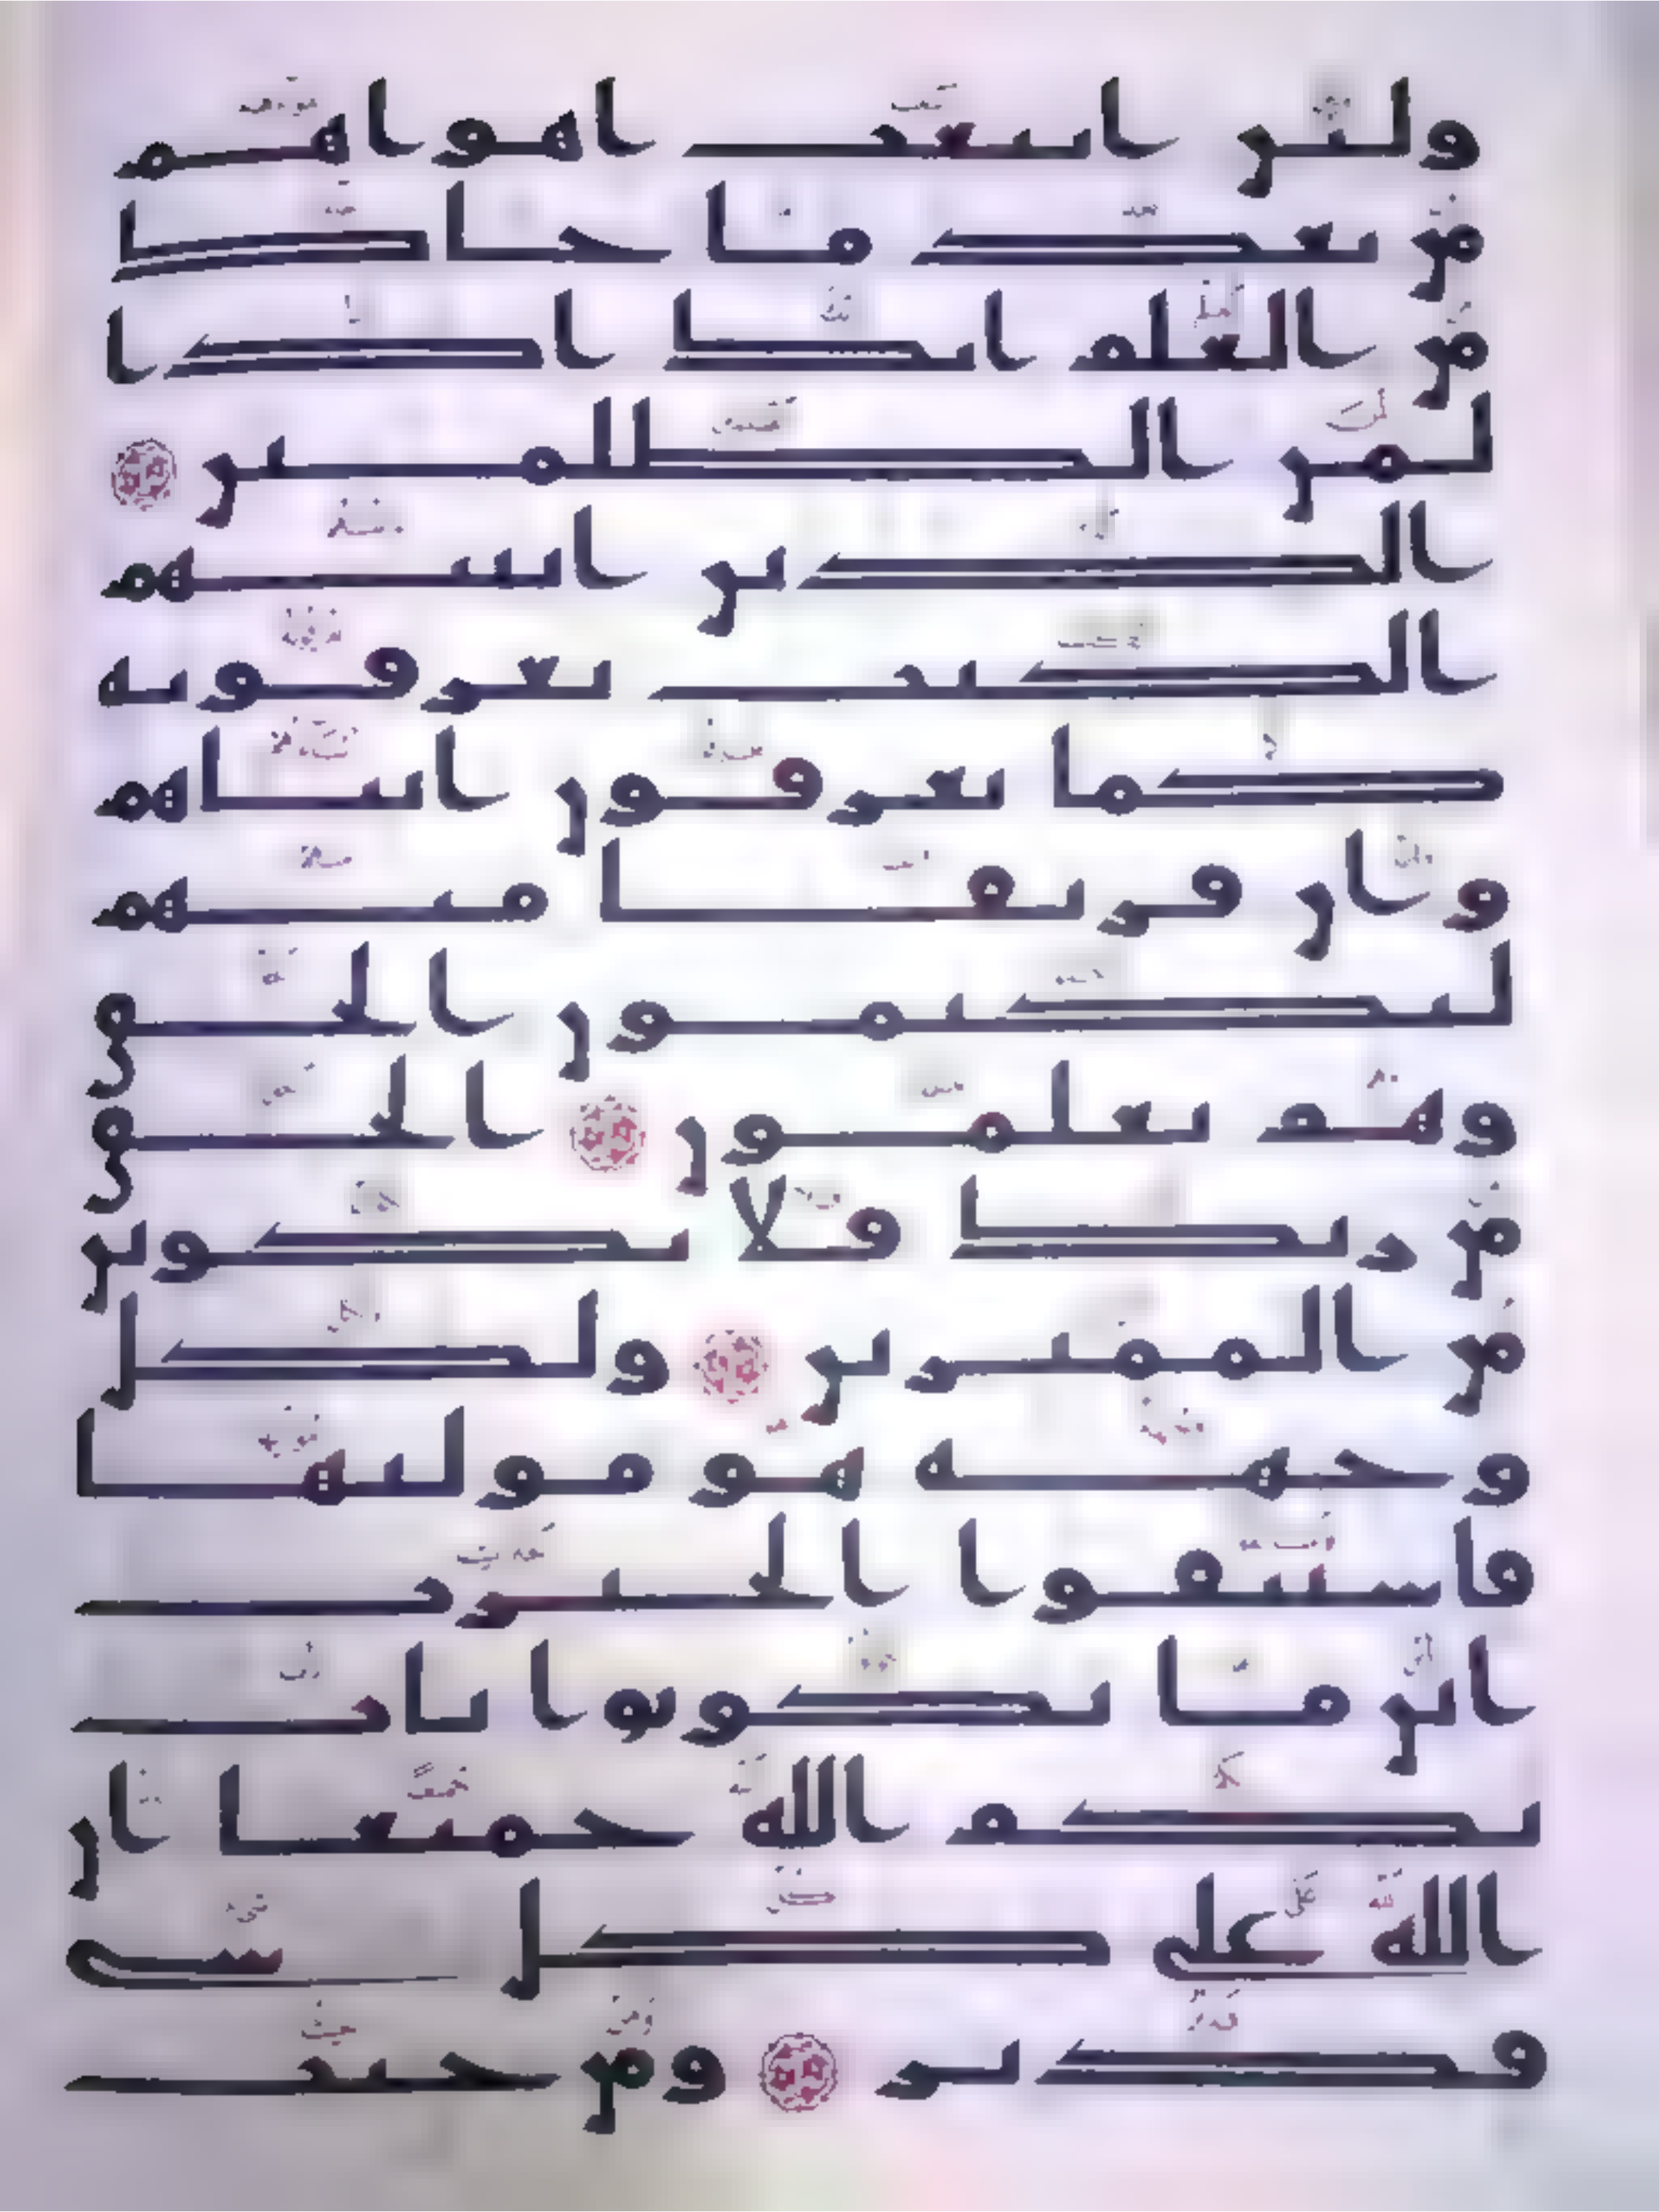 ولئن اتبعت اهواهم
من بعد ما جاك
من العلم انك اذا
لمن الظلمين
الذين اتينهم
الكتب يعرفونه
كما يعرفون ابناهم
وان فريقا منهم
ليكتمون الحق
وهم يعلمون الحق
من ربك فلا تكونن
من الممترين ولكل
وجهة هو موليها
فاستبقوا الخيرت
اين ما تكونوا يات
بكم الله جميعا ان
الله على كل شي
قدير ومن حيث